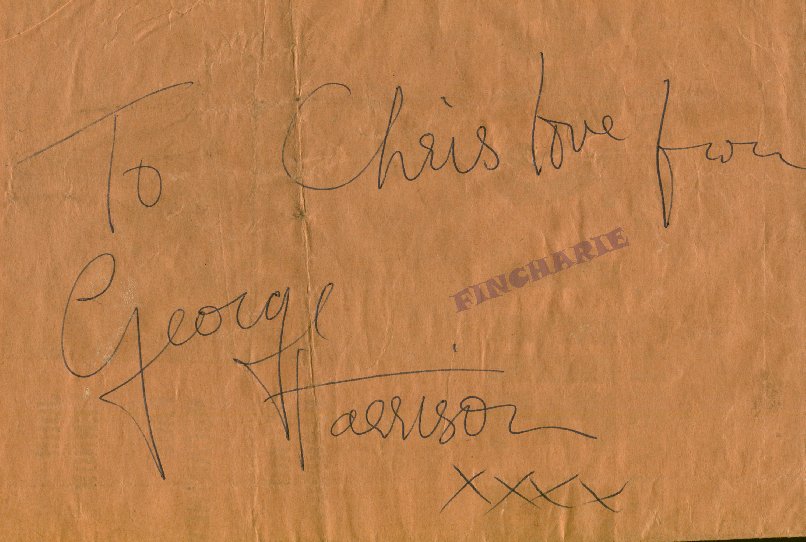 To Chris love from
FINCHARIE
George
Harrison
xxxx